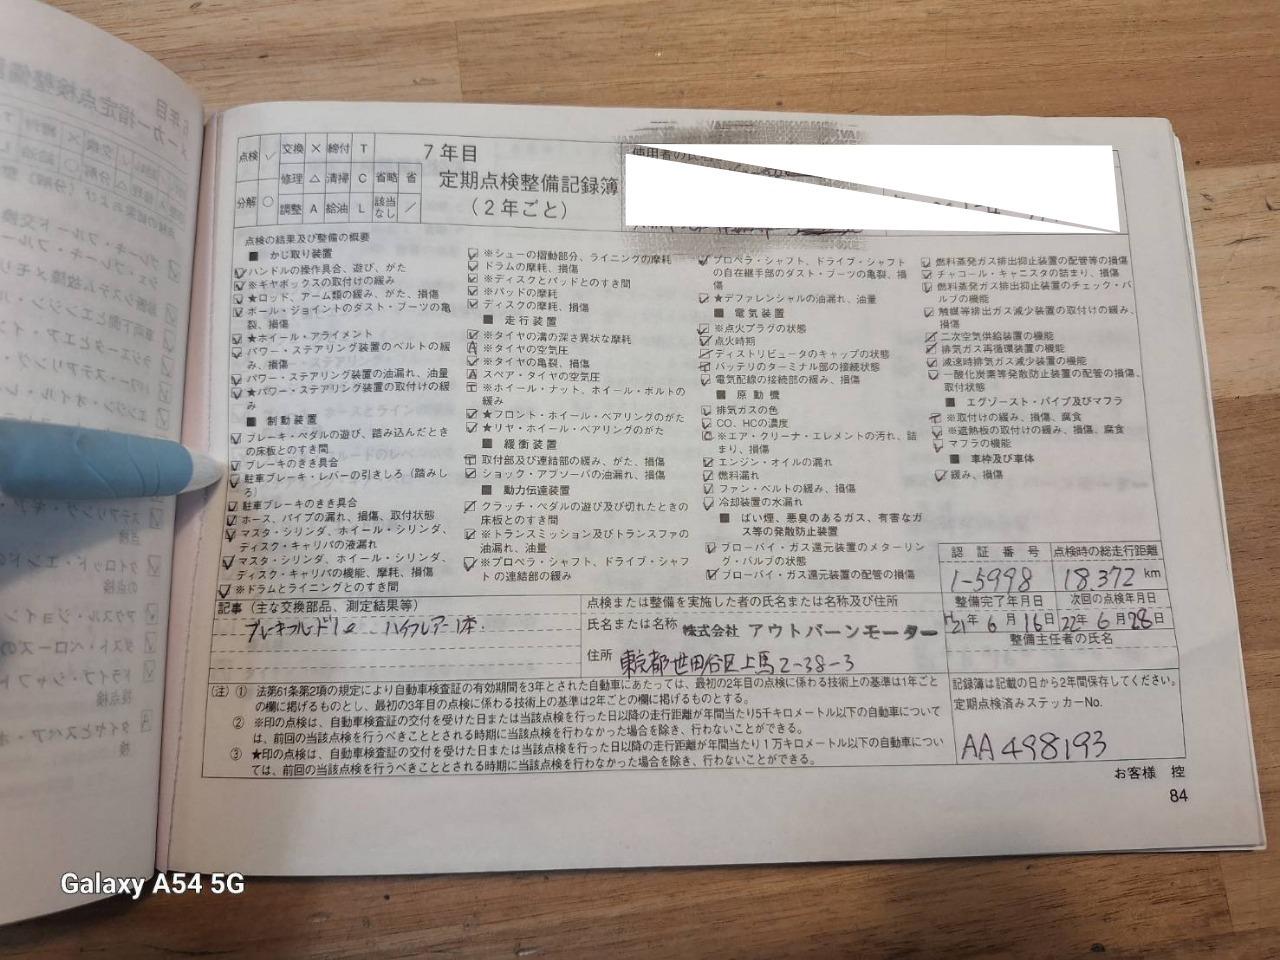 点検 ✓ 交換 × 締付 T
修理 △ 清掃 C 省略 省
分解 ○ 調整 A 給油 L 該当なし /
7年目
定期点検整備記録簿
(2年ごと)
使用者の氏名
点検の結果及び整備の概要
■ かじ取り装置
ハンドルの操作具合、遊び、がた
※ギヤボックスの取付けの緩み
★ロッド、アーム類の緩み、がた、損傷
ボール・ジョイントのダスト・ブーツの亀
裂、損傷
★ホイール・アライメント
パワー・ステアリング装置のベルトの緩
み、損傷
パワー・ステアリング装置の油漏れ、油量
★パワー・ステアリング装置の取付けの緩
み
■ 制動装置
ブレーキ・ペダルの遊び、踏み込んだとき
の床板とのすき間
ブレーキのきき具合
駐車ブレーキ・レバーの引きしろ(踏みし
ろ)
駐車ブレーキのきき具合
ホース、パイプの漏れ、損傷、取付状態
マスタ・シリンダ、ホイール・シリンダ、
ディスク・キャリパの液漏れ
マスタ・シリンダ、ホイール・シリンダ、
ディスク・キャリパの機能、摩耗、損傷
※ドラムとライニングとのすき間
※シューの摺動部分、ライニングの摩耗
ドラムの摩耗、損傷
※ディスクとパッドとのすき間
※パッドの摩耗
ディスクの摩耗、損傷
■ 走行装置
※タイヤの溝の深さ異状な摩耗
※タイヤの空気圧
※タイヤの亀裂、損傷
スペア・タイヤの空気圧
※ホイール・ナット、ホイール・ボルトの
緩み
★フロント・ホイール・ベアリングのがた
★リヤ・ホイール・ベアリングのがた
■ 緩衝装置
取付部及び連結部の緩み、がた、損傷
ショック・アブソーバの油漏れ、損傷
■ 動力伝達装置
クラッチ・ペダルの遊び及び切れたときの
床板とのすき間
※トランスミッション及びトランスファの
油漏れ、油量
※プロペラ・シャフト、ドライブ・シャフ
トの連結部の緩み
プロペラ・シャフト、ドライブ・シャフト
の自在継手部のダスト・ブーツの亀裂、損
傷
★デファレンシャルの油漏れ、油量
■ 電気装置
※点火プラグの状態
点火時期
ディストリビュータのキャップの状態
バッテリのターミナル部の接続状態
電気配線の接続部の緩み、損傷
■ 原動機
排気ガスの色
CO、HCの濃度
※エア・クリーナ・エレメントの汚れ、詰
まり、損傷
エンジン・オイルの漏れ
燃料漏れ
ファン・ベルトの緩み、損傷
冷却装置の水漏れ
■ ばい煙、悪臭のあるガス、有害なガ
ス等の発散防止装置
ブローバイ・ガス還元装置のメターリン
グ・バルブの状態
ブローバイ・ガス還元装置の配管の損傷
燃料蒸発ガス排出抑止装置の配管等の損傷
チャコール・キャニスタの詰まり、損傷
燃料蒸発ガス排出抑止装置のチェック・バ
ルブの機能
触媒等排出ガス減少装置の取付けの緩み、
損傷
二次空気供給装置の機能
排気ガス再循環装置の機能
減速時排気ガス減少装置の機能
一酸化炭素等発散防止装置の配管の損傷、
取付状態
■ エグゾースト・パイプ及びマフラ
※取付けの緩み、損傷、腐食
※遮熱板の取付けの緩み、損傷、腐食
マフラの機能
■ 車枠及び車体
緩み、損傷
認証番号 点検時の総走行距離
1-5998 18,372 km
整備完了年月日 次回の点検年月日
H21年6月16日 22年6月28日
整備主任者の氏名
記事(主な交換部品、測定結果等)
ブレーキフルード1ℓ ハイフレアー1本.
点検または整備を実施した者の氏名または名称及び住所
氏名または名称 株式会社 アウトバーンモーター
住所 東京都世田谷区上馬2-38-3
(注) ① 法第61条第2項の規定により自動車検査証の有効期間を3年とされた自動車にあたっては、最初の2年目の点検に係わる技術上の基準は1年ごと
の欄に掲げるものとし、最初の3年目の点検に係わる技術上の基準は2年ごとの欄に掲げるものとする。
② ※印の点検は、自動車検査証の交付を受けた日または当該点検を行った日以降の走行距離が年間当たり5千キロメートル以下の自動車について
は、前回の当該点検を行うべきこととされる時期に当該点検を行わなかった場合を除き、行わないことができる。
③ ★印の点検は、自動車検査証の交付を受けた日または当該点検を行った日以降の走行距離が年間当たり1万キロメートル以下の自動車につい
ては、前回の当該点検を行うべきこととされる時期に当該点検を行わなかった場合を除き、行わないことができる。
記録簿は記載の日から2年間保存してください。
定期点検済みステッカーNo.
AA498193
お客様 控
84
Galaxy A54 5G